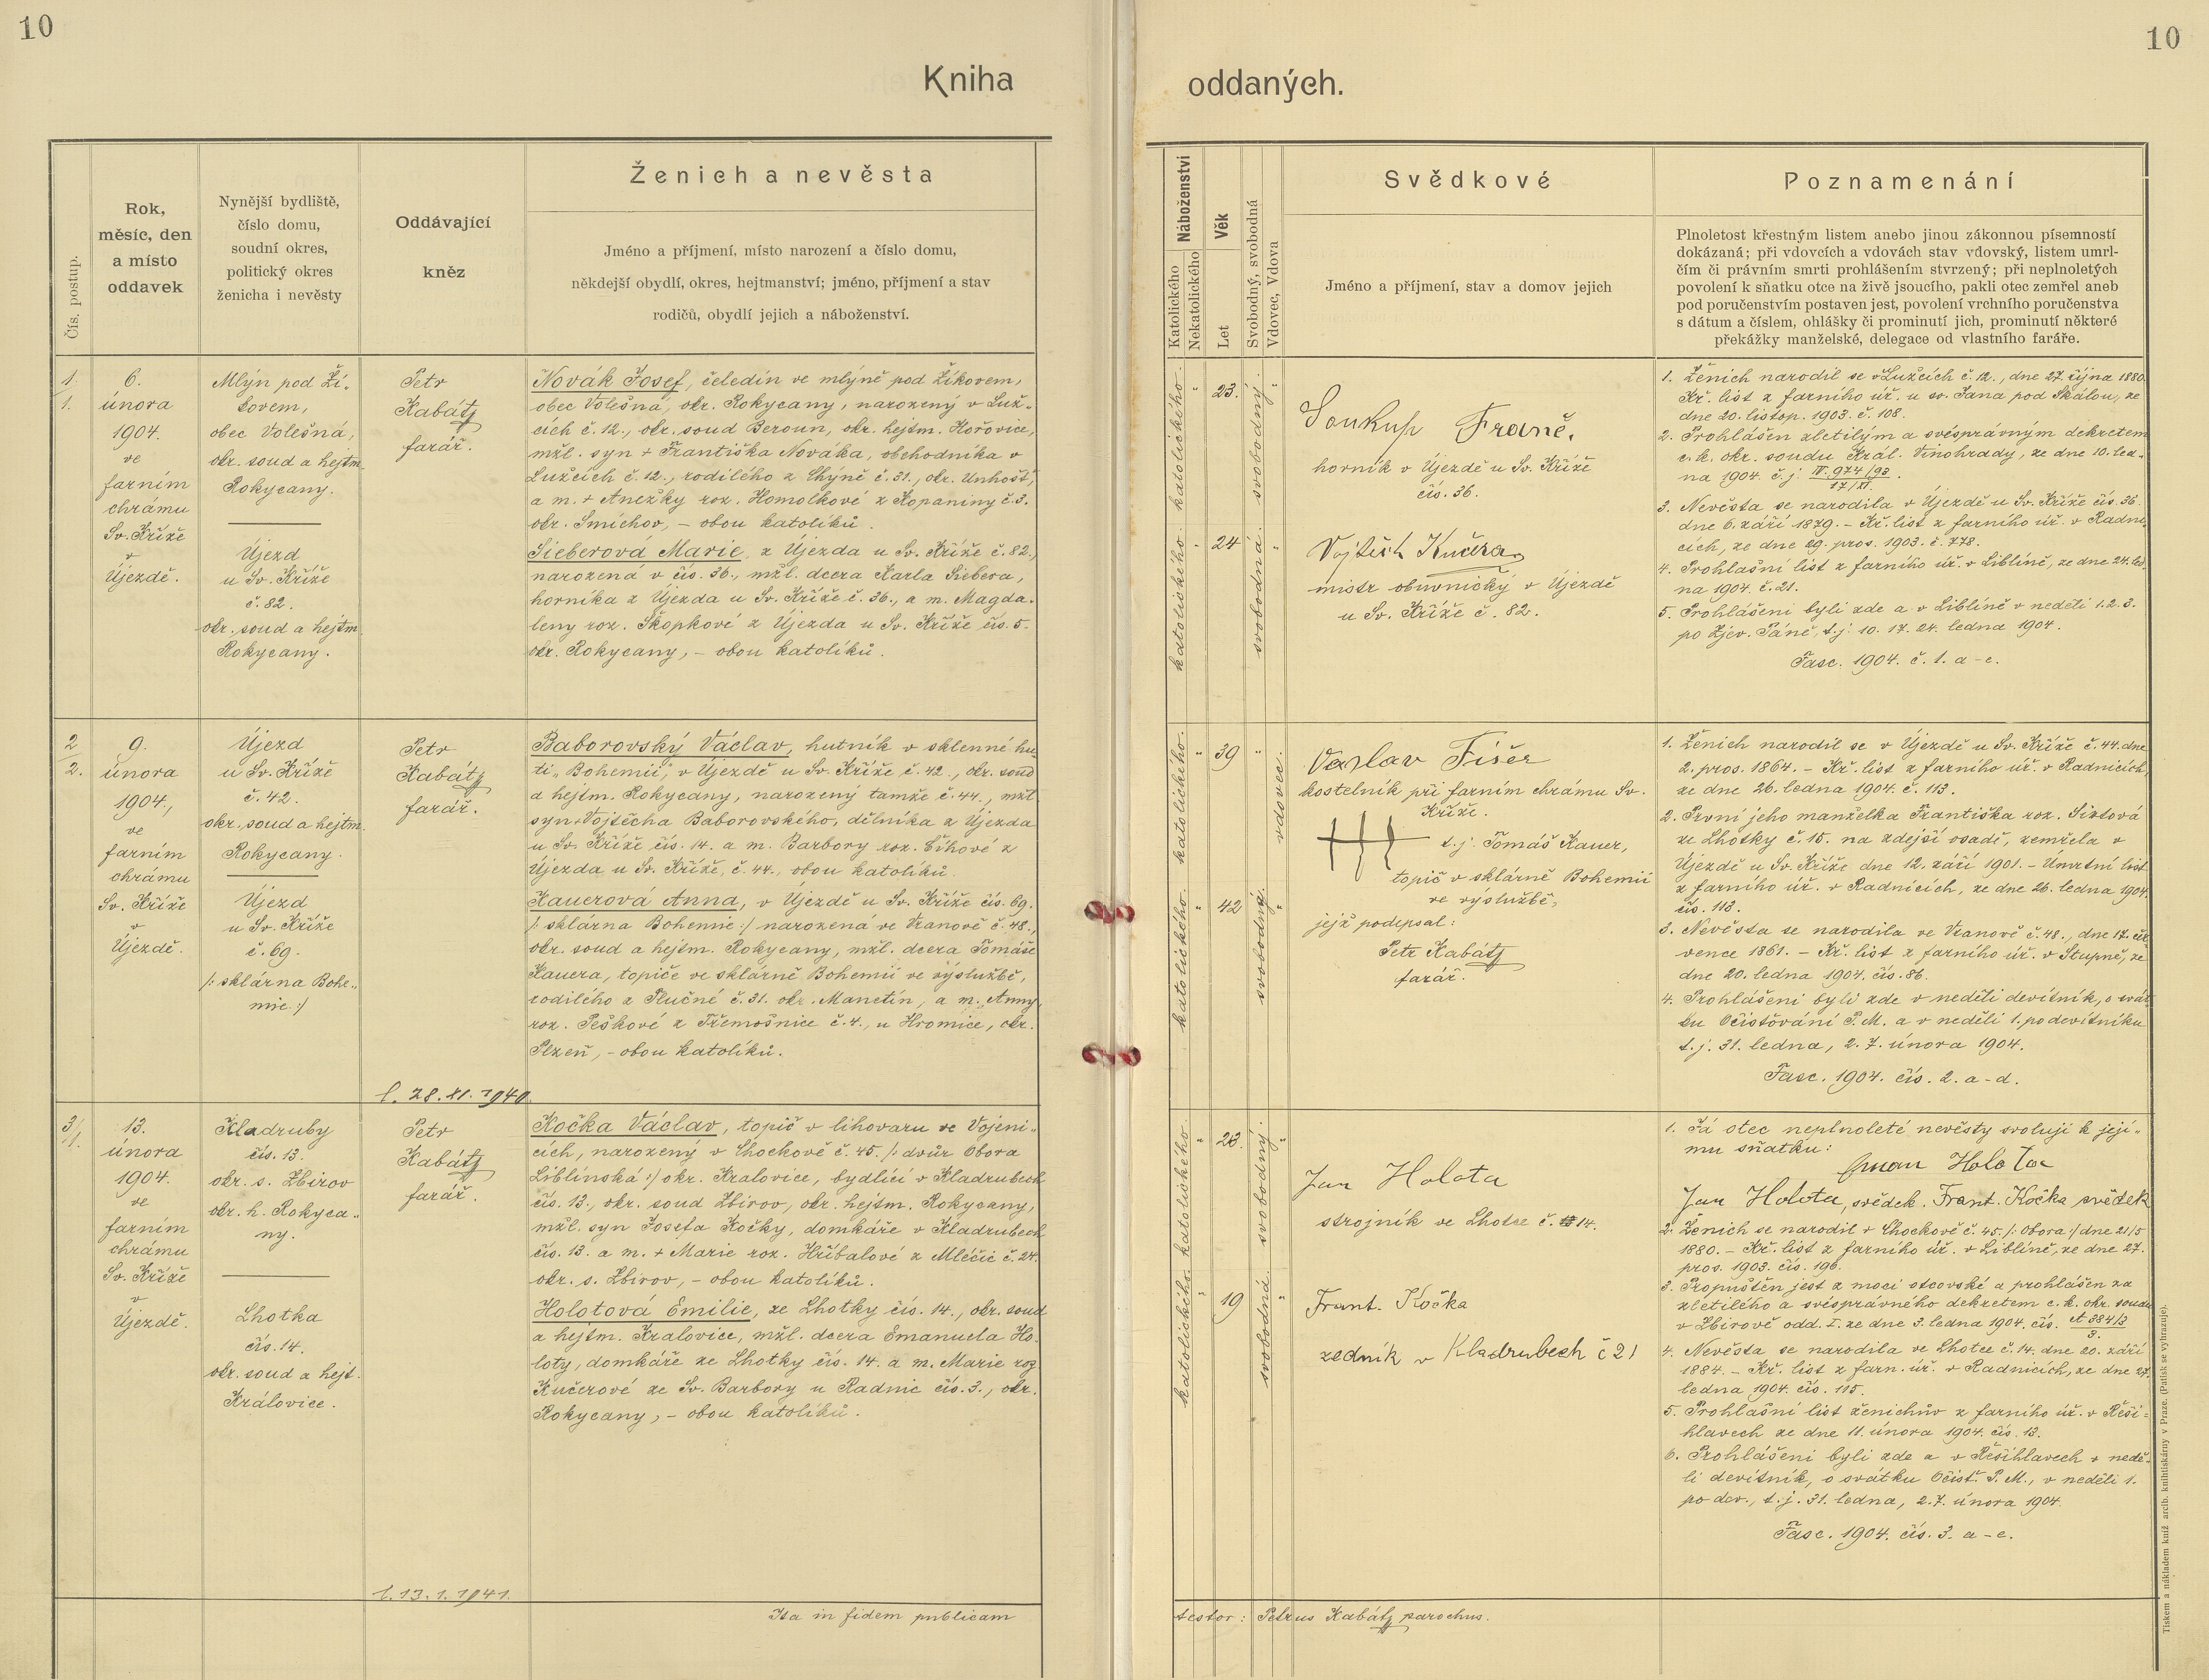 10
10
Kniha
oddaných.
Čís. postup.
Rok,
měsíc, den
a místo
oddavek
Nynější bydliště,
číslo domu,
soudní okres,
politický okres
ženicha i nevěsty
Oddávající
kněz
Ženich a nevěsta
Jméno a příjmení, místo narození a číslo domu,
někdejší obydlí, okres, hejtmanství; jméno, příjmení a stav
rodičů, obydlí jejich a náboženství.
Náboženství
Katolického
Nekatolického
Věk
Let
Svobodný, svobodná
Vdovec, Vdova
Svědkové
Jméno a příjmení, stav a domov jejich
Poznamenání
Plnoletost křestným listem anebo jinou zákonnou písemností
dokázaná; při vdovcích a vdovách stav vdovský, listem umrl-
čím či právním smrti prohlášením stvrzený; při neplnoletých
povolení k sňatku otce na živě jsoucího, pakli otec zemřel aneb
pod poručenstvím postaven jest, povolení vrchního poručenstva
s dátum a číslem, ohlášky či prominutí jich, prominutí některé
překážky manželské, delegace od vlastního faráře.
1
1.
6.
února
1904.
ve
farním
chrámu
Sv. Kříže
v
Újezdě.
Mlýn pod Ží-
kovem,
obec Volešná,
okr. soud a hejtm.
Rokycany.
Újezd
u Sv. Kříže
č. 82.
okr. soud a hejtm.
Rokycany.
Petr
Kabátj
farář.
Novák Josef, čeledín ve mlýně pod Žíkovem,
obec Volešná, okr. Rokycany, narozený v Luž-
cích č. 12., okr. soud Beroun, okr. hejtm. Hořovice,
mžl. syn + Františka Nováka, obchodníka v
Lužcích č. 12., rodilého z Chýně č. 31., okr. Unhošť,
a m. + Anežky roz. Homolkové z Kopaniny č. 3.
okr. Smíchov, – obou katolíků.
Sieberová Marie, z Újezda u Sv. Kříže č. 82.,
narozená v čís. 36., mžl. dcera Karla Siebera,
horníka z Újezda u Sv. Kříže č. 36., a m. Magda-
leny roz. Škopkové z Újezda u Sv. Kříže čís. 5.
okr. Rokycany, – obou katolíků.
katolického.
23.
svobodný.
katolického.
24
svobodná.
Soukup Franč.
horník v Újezdě u Sv. Kříže
čís. 36.
Vojtěch Kučera
mistr obuvnický v Újezdě
u Sv. Kříže č. 82.
1. Ženich narodil se v Lužcích č. 12., dne 27. října 1880.
Kř. list z farního úř. u sv. Jana pod Skálou, ze
dne 20. listop. 1903. č. 108.
2. Prohlášen zletilým a svésprávným dekretem
c. k. okr. soudu Král. Vinohrady, ze dne 10. led-
na 1904. č. j. IV. 974/93
17/XI.
3. Nevěsta se narodila v Újezdě u Sv. Kříže čís. 36.
dne 6. září 1879. – Kř. list z farního úř. v Radni-
cích, ze dne 29. pros. 1903. č. 778.
4. Prohlašní list z farního úř. v Liblíně, ze dne 24. led-
na 1904. č. 21.
5. Prohlášeni byli zde a v Liblíně v neděli 1. 2. 3.
po Zjev. Páně, t. j. 10. 17. 24. ledna 1904.
Fasc. 1904. č. 1. a – e.
2
2.
9.
února
1904.,
ve
farním
chrámu
Sv. Kříže
v
Újezdě.
Újezd
u Sv. Kříže
č. 42.
okr. soud a hejtm.
Rokycany.
Újezd
u Sv. Kříže
č. 69.
/: sklárna Bohe-
mie :/
Petr
Kabátj
farář.
Baborovský Václav, hutník v sklenné hu
ti „Bohemii“, v Újezdě u Sv. Kříže č. 42., okr. soud
a hejtm. Rokycany, narozený tamže č. 44., mžl.
syn + Vojtěcha Baborovského, dělníka z Újezda
u Sv. Kříže čís. 14. a m. Barbory roz. Číhové z
Újezda u Sv. Kříže, č. 44., obou katolíků.
Kauerová Anna, v Újezdě u Sv. Kříže čís. 69.
/: sklárna Bohemie :/ narozená ve Vranově č. 48.,
okr. soud a hejtm. Rokycany, mžl. dcera Tomáše
Kauera, topiče ve sklárně Bohemii ve výslužbě,
rodilého z Plučné č. 31. okr. Manetín, a m. Anny
roz. Peškové z Třemošnice č. 4., u Hromice, okr.
Plzeň, – obou katolíků.
l. 28. XI. 1940.
katolického.
39
vdovec.
katolického.
42
svobodná.
Vaclav Fišer
kostelník při farním chrámu Sv.
Kříže.
+++
t. j. Tomáš Kauer,
topič v sklárně Bohemii
ve výslužbě,
jejž podepsal:
Petr Kabátj
farář.
1. Ženich narodil se v Újezdě u Sv. Kříže č. 44. dne
2. pros. 1864. – Kř. list z farního úř. v Radnicích,
ze dne 26. ledna 1904. č. 113.
2. První jeho manželka Františka roz. Sixtová
ze Lhotky č. 15. na zdejší osadě, zemřela v
Újezdě u Sv. Kříže dne 12. září 1901. – Úmrtní list
z farního úř. v Radnicích, ze dne 26. ledna 1904.
čís. 113.
3. Nevěsta se narodila ve Vranově č. 48., dne 17. čer-
vence 1861. – Kř. list z farního úř. v Stupně, ze
dne 20. ledna 1904. čís. 86.
4. Prohlášeni byli zde v neděli devítník, o svát-
ku Očišťování P. M. a v neděli 1. po devítníku
t. j. 31. ledna, 2. 7. února 1904.
Fasc. 1904. čís. 2. a – d.
3
1.
13.
února
1904.
ve
farním
chrámu
Sv. Kříže
v
Újezdě.
Kladruby
čís. 13.
okr. s. Zbirov
okr. h. Rokyca-
ny.
Lhotka
čís. 14.
okr. soud a hejt.
Královice.
Petr
Kabátj
farář.
Kočka Václav, topič v lihovaru ve Vojeni-
cích, narozený v Chockově č. 45. /: dvůr Obora
Liblínská :/ okr. Kralovice, bydlící v Kladrubech
čís. 13., okr. soud Zbirov, okr. hejtm. Rokycany,
mžl. syn Josefa Kočky, domkáře v Kladrubech
čís. 13. a m. + Marie roz. Hříbalové z Mlečic č. 24.
okr. s. Zbirov, – obou katolíků.
Holotová Emilie, ze Lhotky čís. 14., okr. soud
a hejtm. Kralovice, mžl. dcera Emanuela Ho-
loty, domkáře ze Lhotky čís. 14. a m. Marie roz.
Kučerové ze Sv. Barbory u Radnic čís. 3., okr.
Rokycany, – obou katolíků.
l. 13. 1. 1941.
katolického.
23.
svobodný.
katolického.
19
svobodná.
Jan Holota
strojník ve Lhotce č. 14.
Frant. Kočka
zedník v Kladrubech č 21
1. Já otec neplnoleté nevěsty svoluji k její-
mu sňatku:
Eman Holota
Jan Holota, svědek. Frant. Kočka svědek
2. Ženich se narodil v Chockově č. 45. /: Obora :/ dne 21/5
1880. – Kř. list z farního úř. v Liblíně, ze dne 27.
pros. 1903. čís. 196.
3. Propuštěn jest z moci otcovské a prohlášen za
zletilého a svésprávného dekretem c. k. okr. soudu
v Zbirově odd. I. ze dne 3. ledna 1904. čís. A 384/3
3.
4. Nevěsta se narodila ve Lhotce č. 14. dne 20. září
1884. – Kř. list z farn. úř. v Radnicích, ze dne 27.
ledna 1904. čís. 115.
5. Prohlašní list ženichův z farního úř. v Řeši-
hlavech ze dne 11. února 1904. čís. 13.
6. Prohlášeni byli zde a v Řešihlavech v nedě-
li devítník, o svátku Očišť. P. M., v neděli 1.
po dev., t. j. 31. ledna, 2. 7. února 1904.
Fasc. 1904. čís. 3. a – e.
Ita in fidem publicam
testor: Petrus Kabátj parochus.
Tiskem a nákladem kníž. arcib. knihtiskárny v Praze. (Patisk se vyhrazuje).